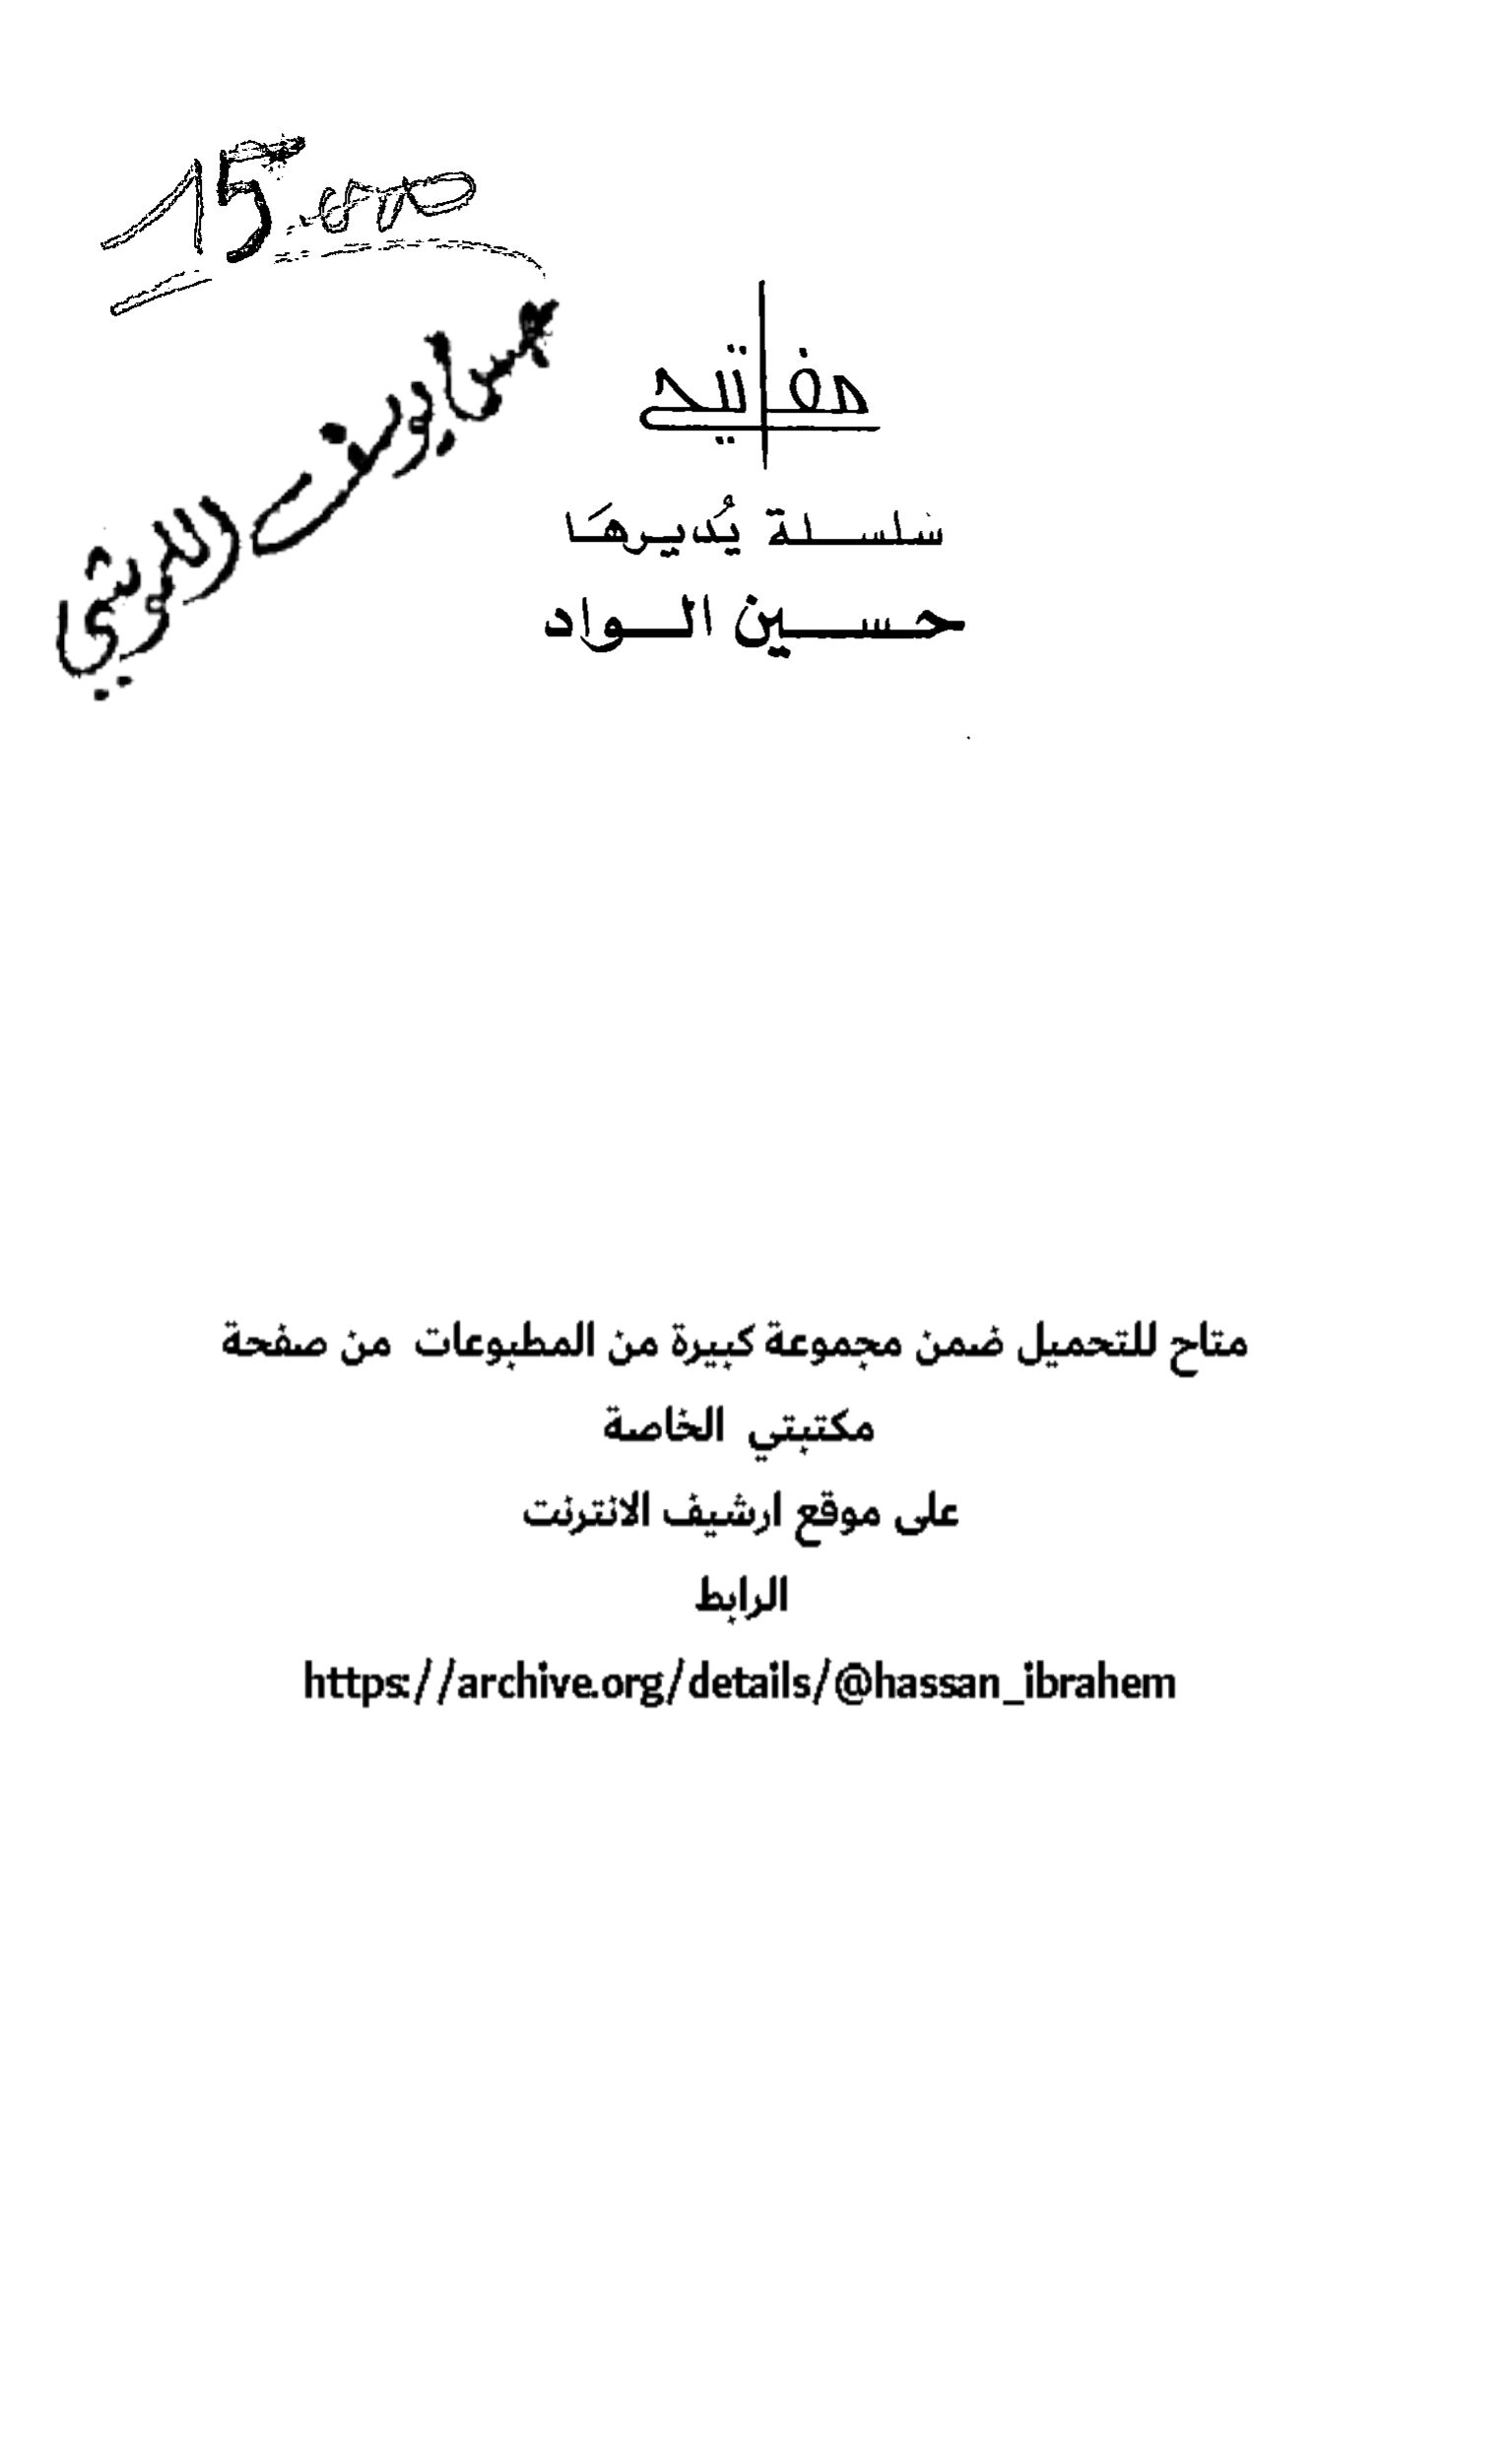 15.000
مفاتيح
سلسلة يُديرهَا
حسين الواد
متاح للتحميل ضمن مجموعة كبيرة من المطبوعات من صفحة
مكتبتي الخاصة
على موقع ارشيف الانترنت
الرابط
https://archive.org/details/@hassan_ibrahem